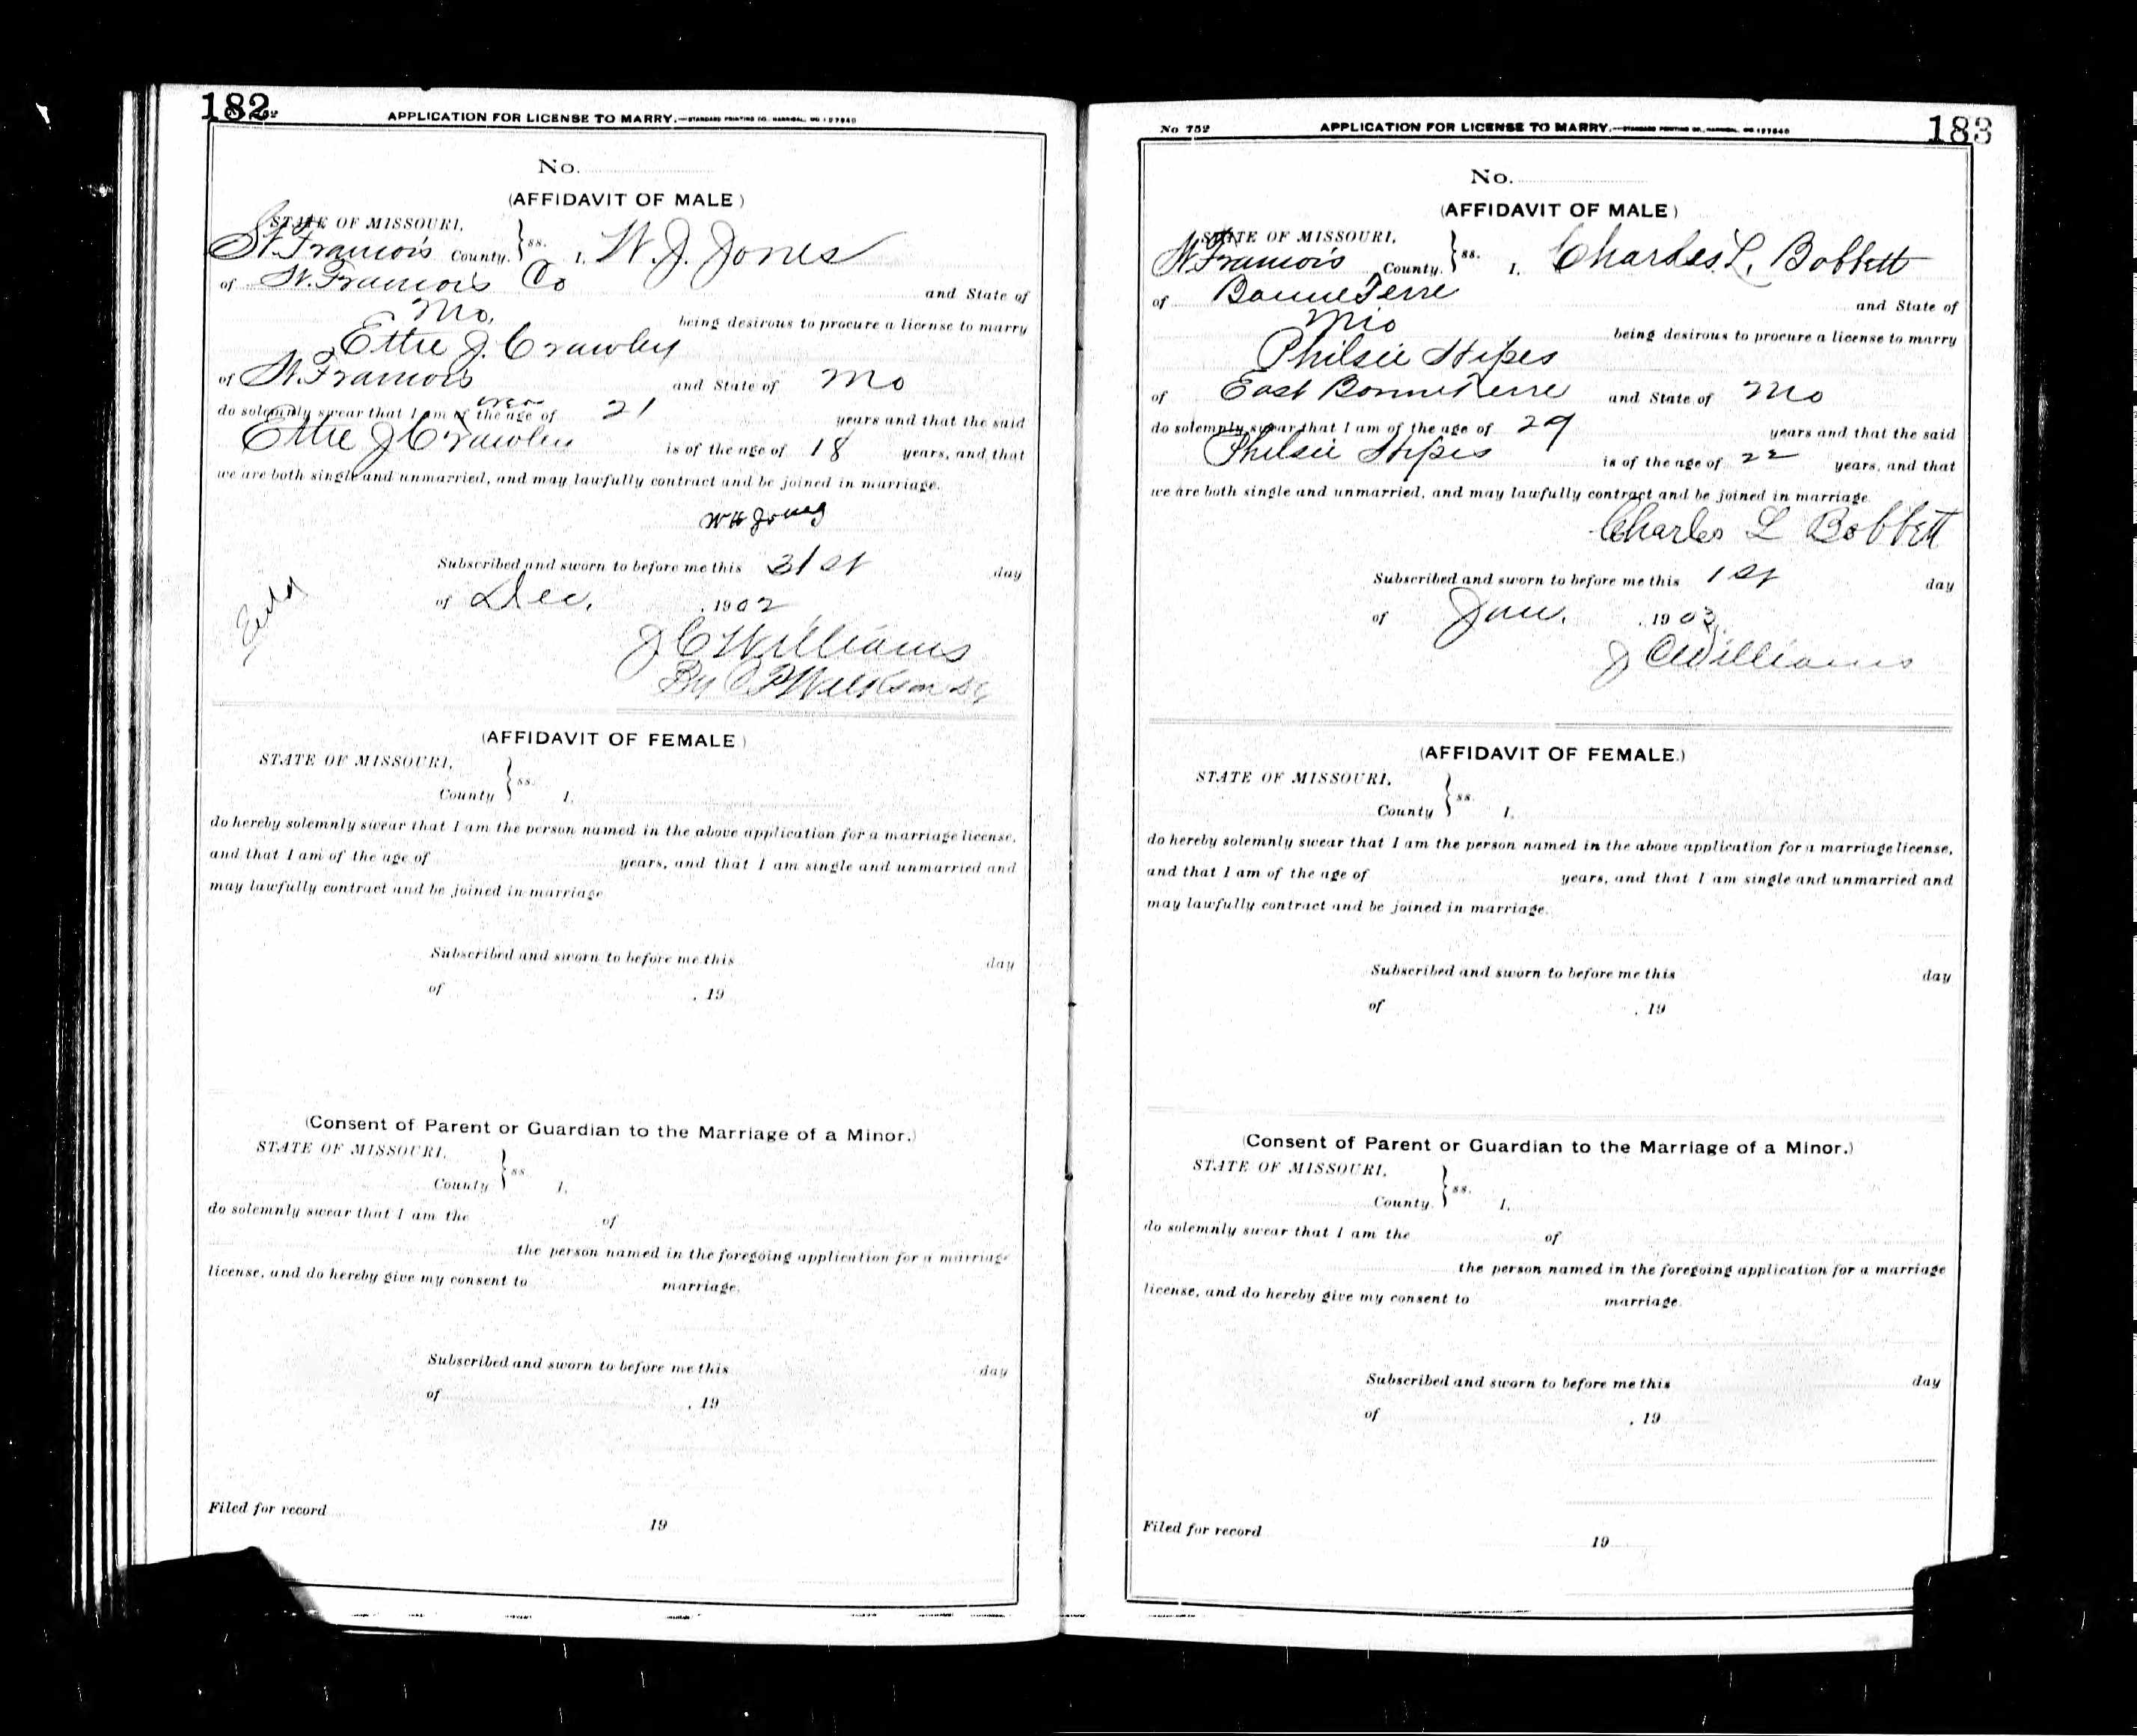 182
APPLICATION FOR LICENSE TO MARRY.—STANDARD PRINTING CO., HANNIBAL, MO
No.
(AFFIDAVIT OF MALE)
STATE OF MISSOURI,
St. Francois County. } ss. I, W. J. Jones
of St. Francois Co and State of
Mo. being desirous to procure a license to marry
Ettie J. Crawley
of St. Francois and State of Mo
do solemnly swear that I am of over the age of 21 years and that the said
Ettie J Crawley is of the age of 18 years, and that
we are both single and unmarried, and may lawfully contract and be joined in marriage.
W H Jones
Subscribed and sworn to before me this 31st day
of Dec. , 1902
J C Williams
By C P
(AFFIDAVIT OF FEMALE)
STATE OF MISSOURI,
County } ss. I,
do hereby solemnly swear that I am the person named in the above application for a marriage license,
and that I am of the age of years, and that I am single and unmarried and
may lawfully contract and be joined in marriage.
Subscribed and sworn to before me this day
of , 19
(Consent of Parent or Guardian to the Marriage of a Minor.)
STATE OF MISSOURI,
County } ss. I,
do solemnly swear that I am the of
the person named in the foregoing application for a marriage
license, and do hereby give my consent to marriage.
Subscribed and sworn to before me this day
of , 19
Filed for record 19
No 752 APPLICATION FOR LICENSE TO MARRY.—STANDARD PRINTING CO., HANNIBAL, MO 183
No.
(AFFIDAVIT OF MALE)
STATE OF MISSOURI,
St Francois County. } ss. I, Charles L. Bobbett
of Bonne Terre and State of
Mo being desirous to procure a license to marry
Philsie Stipes
of East Bonne Terre and State of Mo
do solemnly swear that I am of the age of 29 years and that the said
Philsie Stipes is of the age of 22 years, and that
we are both single and unmarried, and may lawfully contract and be joined in marriage.
Charles L Bobbett
Subscribed and sworn to before me this 1st day
of Jan. , 1903.
J C Williams
(AFFIDAVIT OF FEMALE.)
STATE OF MISSOURI,
County } ss. I,
do hereby solemnly swear that I am the person named in the above application for a marriage license,
and that I am of the age of years, and that I am single and unmarried and
may lawfully contract and be joined in marriage.
Subscribed and sworn to before me this day
of , 19
(Consent of Parent or Guardian to the Marriage of a Minor.)
STATE OF MISSOURI,
County. } ss. I,
do solemnly swear that I am the of
the person named in the foregoing application for a marriage
license, and do hereby give my consent to marriage.
Subscribed and sworn to before me this day
of , 19
Filed for record 19